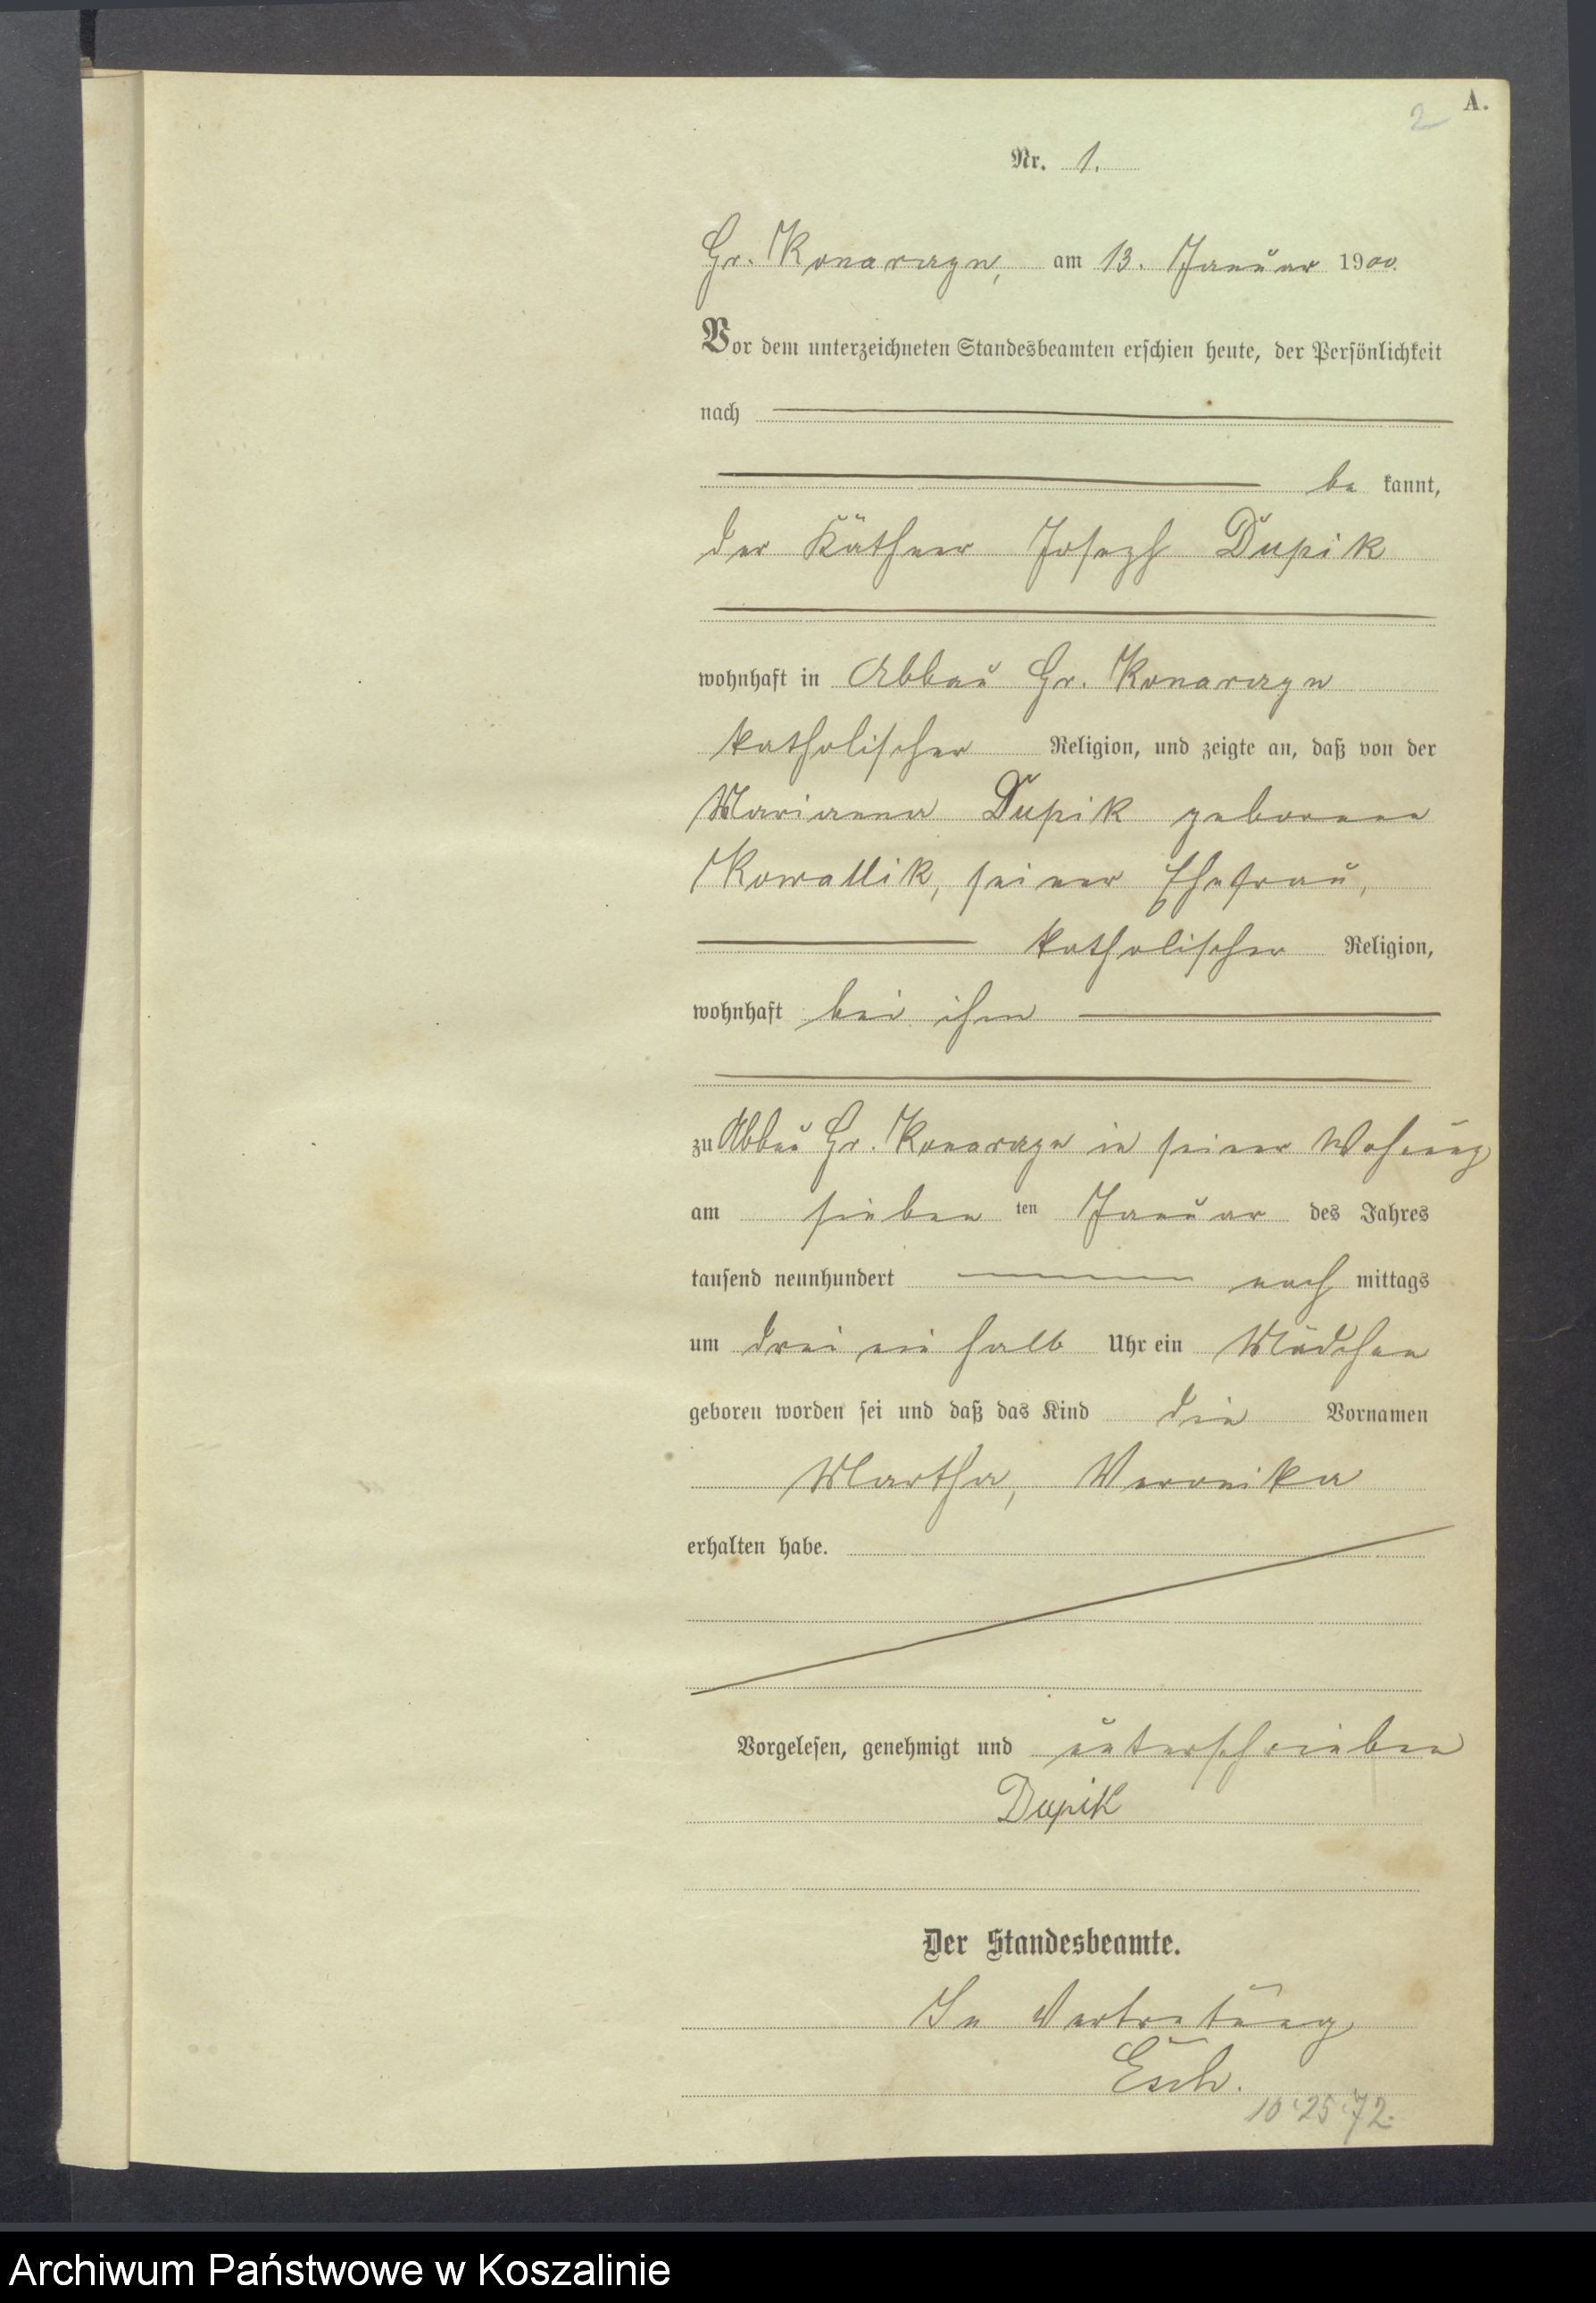 A.
2
Nr. 1.
Gr. Konarczyn, am 13. Januar 1900.
Vor dem unterzeichneten Standesbeamten erschien heute, der Persönlichkeit
nach
be kannt,
der Käthner Joseph Dupik
wohnhaft in Abbau Gr. Konarczyn
katholischer Religion, und zeigte an, daß von der
Marianna Dupik geborene
Kowallik, seiner Ehefrau,
katholischer Religion,
wohnhaft bei ihm
zu Abbau Gr. Konarczyn in seiner Wohnung
am sieben ten Januar des Jahres
tausend neunhundert nach mittags
um drei ein halb Uhr ein Mädchen
geboren worden sei und daß das Kind die Vornamen
Martha, Weronika
erhalten habe.
Vorgelesen, genehmigt und unterschrieben
Dupik
Der Standesbeamte.
In Vertretung
Esch.
10.25.72.
Archiwum Państwowe w Koszalinie